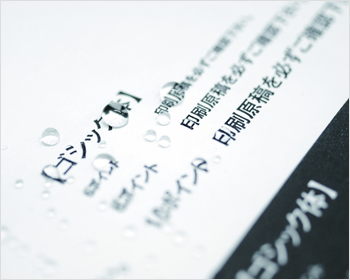 【ゴシック体】
ポイント 印刷原稿を必ずご確認下さい
ポイント 印刷原稿を必ずご確認下
ポイント 印刷原稿を必ずご確認
ゴシック体】